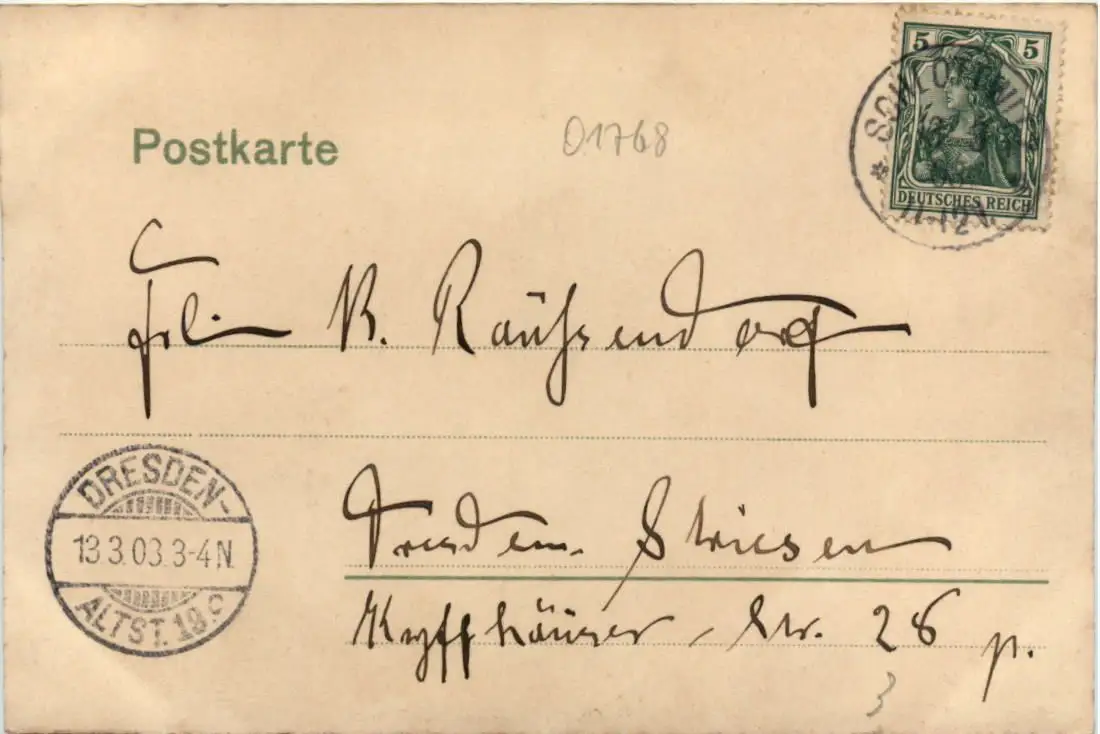 5 5
DEUTSCHES REICH
Postkarte
01768
Frln B.
DRESDEN-
13.3.03.3-4N.
ALTST. 19.c
Dresden. Striesen
Kyffhäuser - Str. 26 p.
3